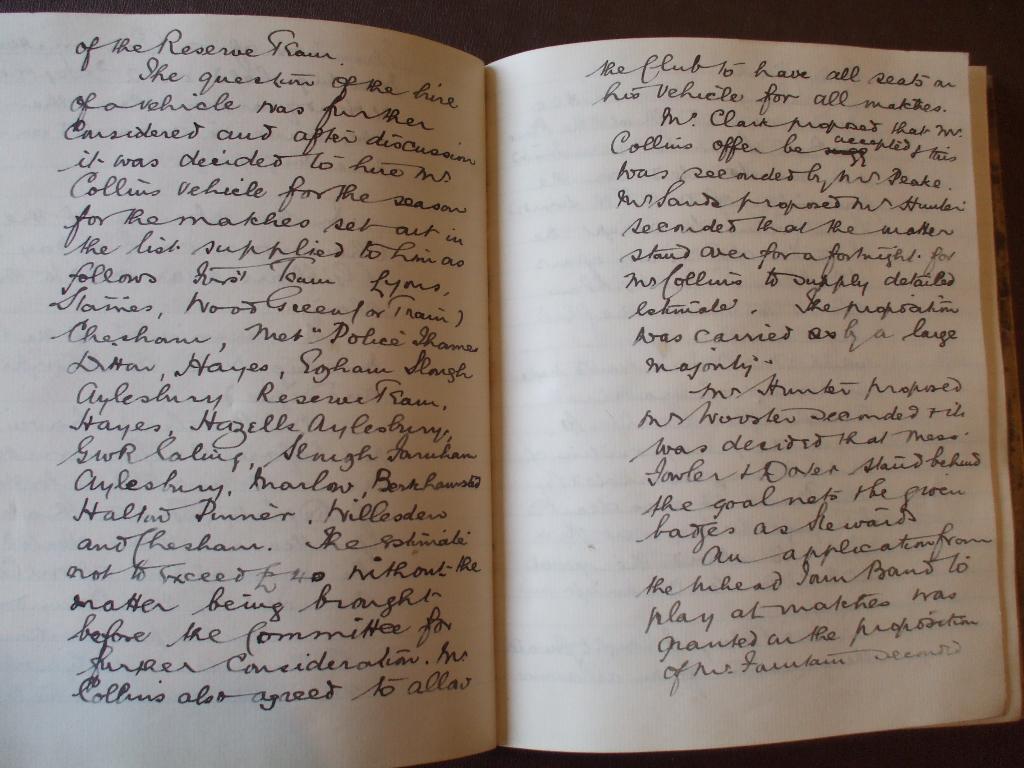 of the Reserve Team.
The question of the hire
of a vehicle was further
Considered and after discussion
it was decided to hire Mr
Collins Vehicle for the season
for the matches set out in
the list supplied to him as
follows First Team Lyons,
Staines, Wood Green (or Train)
Chesham, Met Police Thames
Ditton, Hayes, Egham Slough
Aylesbury Reserve Team,
Hayes, Hazells Aylesbury,
GWR Ealing, Slough Farnham
Aylesbury, Marlow, Berkhamsted
Halton Pinner, Willesden
and Chesham. The estimate
not to exceed £40 without the
matter being brought
before the Committee for
further consideration. Mr
Collins also agreed to allow
the Club to have all seats on
his vehicle for all matches.
Mr. Clark proposed that Mr.
Collins offer be accepted & this
was seconded by Mr Peake.
Mr Sands proposed Mr Hunter
seconded that the matter
stand over for a fortnight for
Mr Collins to supply detailed
Estimate. The proposition
was carried by a large
majority.
Mr Hunter proposed
Mr Wooster seconded & it
was decided that Mess.
Fowler & Dover stand behind
the goal nets the given
badges as Stewards
An application from
the Band to
play at matches was
granted on the proposition
of Mr. second